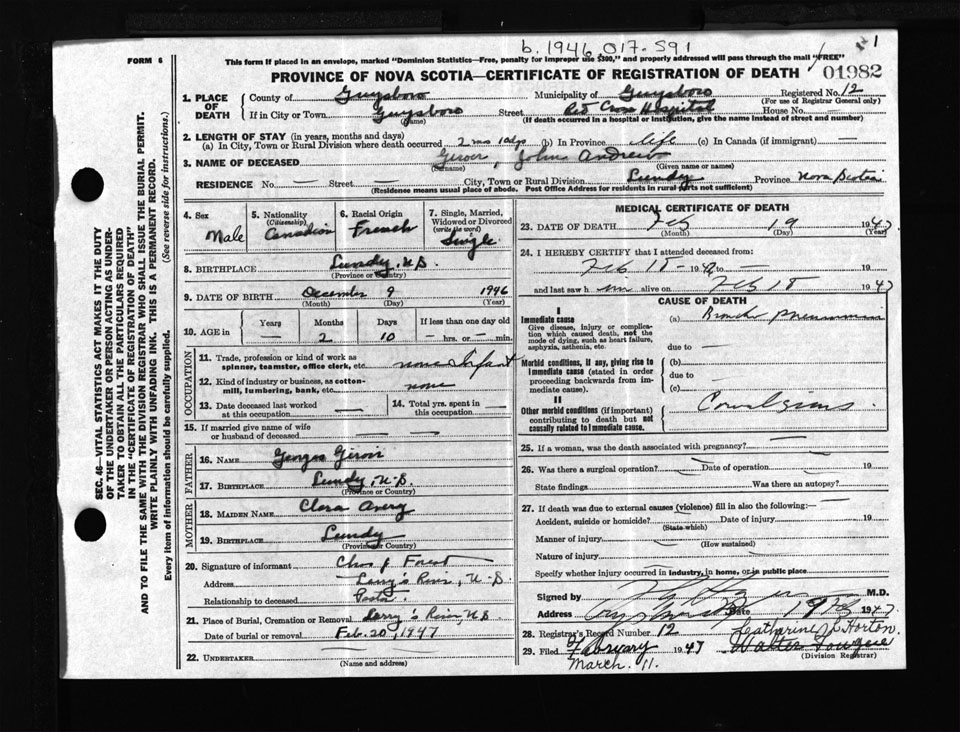 b. 1946. 017-591
1
FORM 6
This form if placed in an envelope, marked "Dominion Statistics—Free, penalty for improper use $300," and properly addressed will pass through the mail "FREE"
PROVINCE OF NOVA SCOTIA—CERTIFICATE OF REGISTRATION OF DEATH
01982
1. PLACE OF DEATH
County of Guysboro Municipality of Guysboro Registered No. 12
(For use of Registrar General only)
If in City or Town Guysboro Street Red Cross Hospital House No. —
(Name) (If death occurred in a hospital or institution, give the name instead of street and number)
2. LENGTH OF STAY (in years, months and days)
(a) In City, Town or Rural Division where death occurred 2 mos 10 dys (b) In Province life (c) In Canada (if immigrant)
3. NAME OF DECEASED Giroir, John Andrew
(Surname) (Given name or names)
RESIDENCE No. — Street — City, Town or Rural Division Lundy Province Nova Scotia
(Residence means usual place of abode. Post Office Address for residents in rural parts not sufficient)
4. Sex Male
5. Nationality (Citizenship) Canadian
6. Racial Origin French
7. Single, Married, Widowed or Divorced (write the word) Single
8. BIRTHPLACE Lundy, N.S.
(Province or Country)
9. DATE OF BIRTH December 9 1946
(Month) (Day) (Year)
10. AGE in Years — Months 2 Days 10 If less than one day old — hrs. or — min.
OCCUPATION
11. Trade, profession or kind of work as spinner, teamster, office clerk, etc. none Infant
12. Kind of industry or business, as cotton-mill, lumbering, bank, etc. none
13. Date deceased last worked at this occupation —
14. Total yrs. spent in this occupation —
15. If married give name of wife or husband of deceased — —
FATHER
16. NAME Giroir
17. BIRTHPLACE Lundy, N.S.
(Province or Country)
MOTHER
18. MAIDEN NAME Clara Avery
19. BIRTHPLACE Lundy
(Province or Country)
20. Signature of informant Chas J Forest
Address Larry's River, N.S.
Relationship to deceased Pastor
21. Place of Burial, Cremation or Removal Larry's River, N.S.
Date of burial or removal Feb. 20, 1947
22. UNDERTAKER
(Name and Address)
MEDICAL CERTIFICATE OF DEATH
23. DATE OF DEATH Feb 19 1947
(Month) (Day) (Year)
24. I HEREBY CERTIFY that I attended deceased from:
Feb 18 - 1947 to — 19
and last saw him alive on Feb 18 1947
CAUSE OF DEATH
I
Immediate cause
Give disease, injury or complication which caused death, not the mode of dying, such as heart failure, asphyxia, asthenia, etc.
(a) Broncho pneumonia
due to —
Morbid conditions, if any, giving rise to immediate cause (stated in order proceeding backwards from immediate cause).
(b)
due to —
(c)
II
Other morbid conditions (if important) contributing to death but not causally related to immediate cause.
Convulsions
25. If a woman, was the death associated with pregnancy? —
26. Was there a surgical operation? — Date of operation — 19
State findings Was there an autopsy?
27. If death was due to external causes (violence) fill in also the following:—
Accident, suicide or homicide? Date of injury 19
(State which)
Manner of injury
(How sustained)
Nature of injury
Specify whether injury occurred in industry, in home, or in public place
Signed by M.D.
Address Date 1947
28. Registrar's Record Number 12 Catharine L Horton.
29. Filed February 1947
March. 11.
(Division Registrar)
SEC. 46—VITAL STATISTICS ACT MAKES IT THE DUTY
OF THE UNDERTAKER OR PERSON ACTING AS UNDER-
TAKER TO OBTAIN ALL THE PARTICULARS REQUIRED
IN THE "CERTIFICATE OF REGISTRATION OF DEATH"
AND TO FILE THE SAME WITH THE DIVISION REGISTRAR WHO SHALL ISSUE THE BURIAL PERMIT.
WRITE PLAINLY WITH UNFADING INK. THIS IS A PERMANENT RECORD.
Every item of information should be carefully supplied. (See reverse side for instructions.)